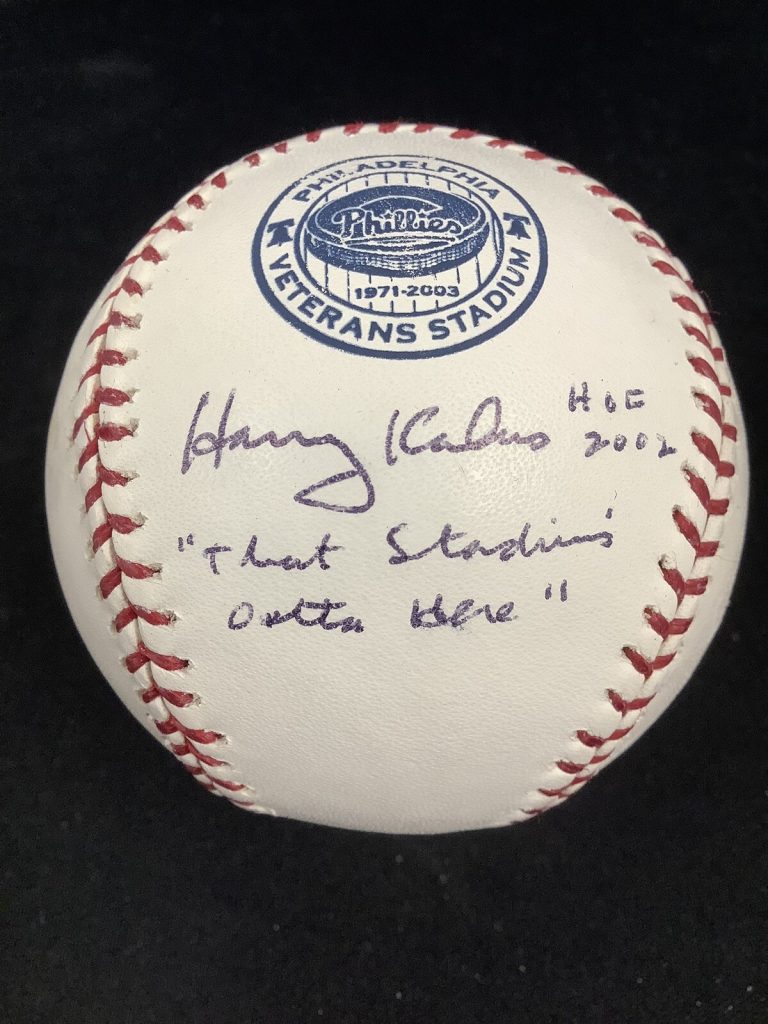 PHILADELPHIA
Phillies
1971-2003
VETERANS STADIUM
Harry Kalas HOF
2002
"That Stadium's
Outta Here"